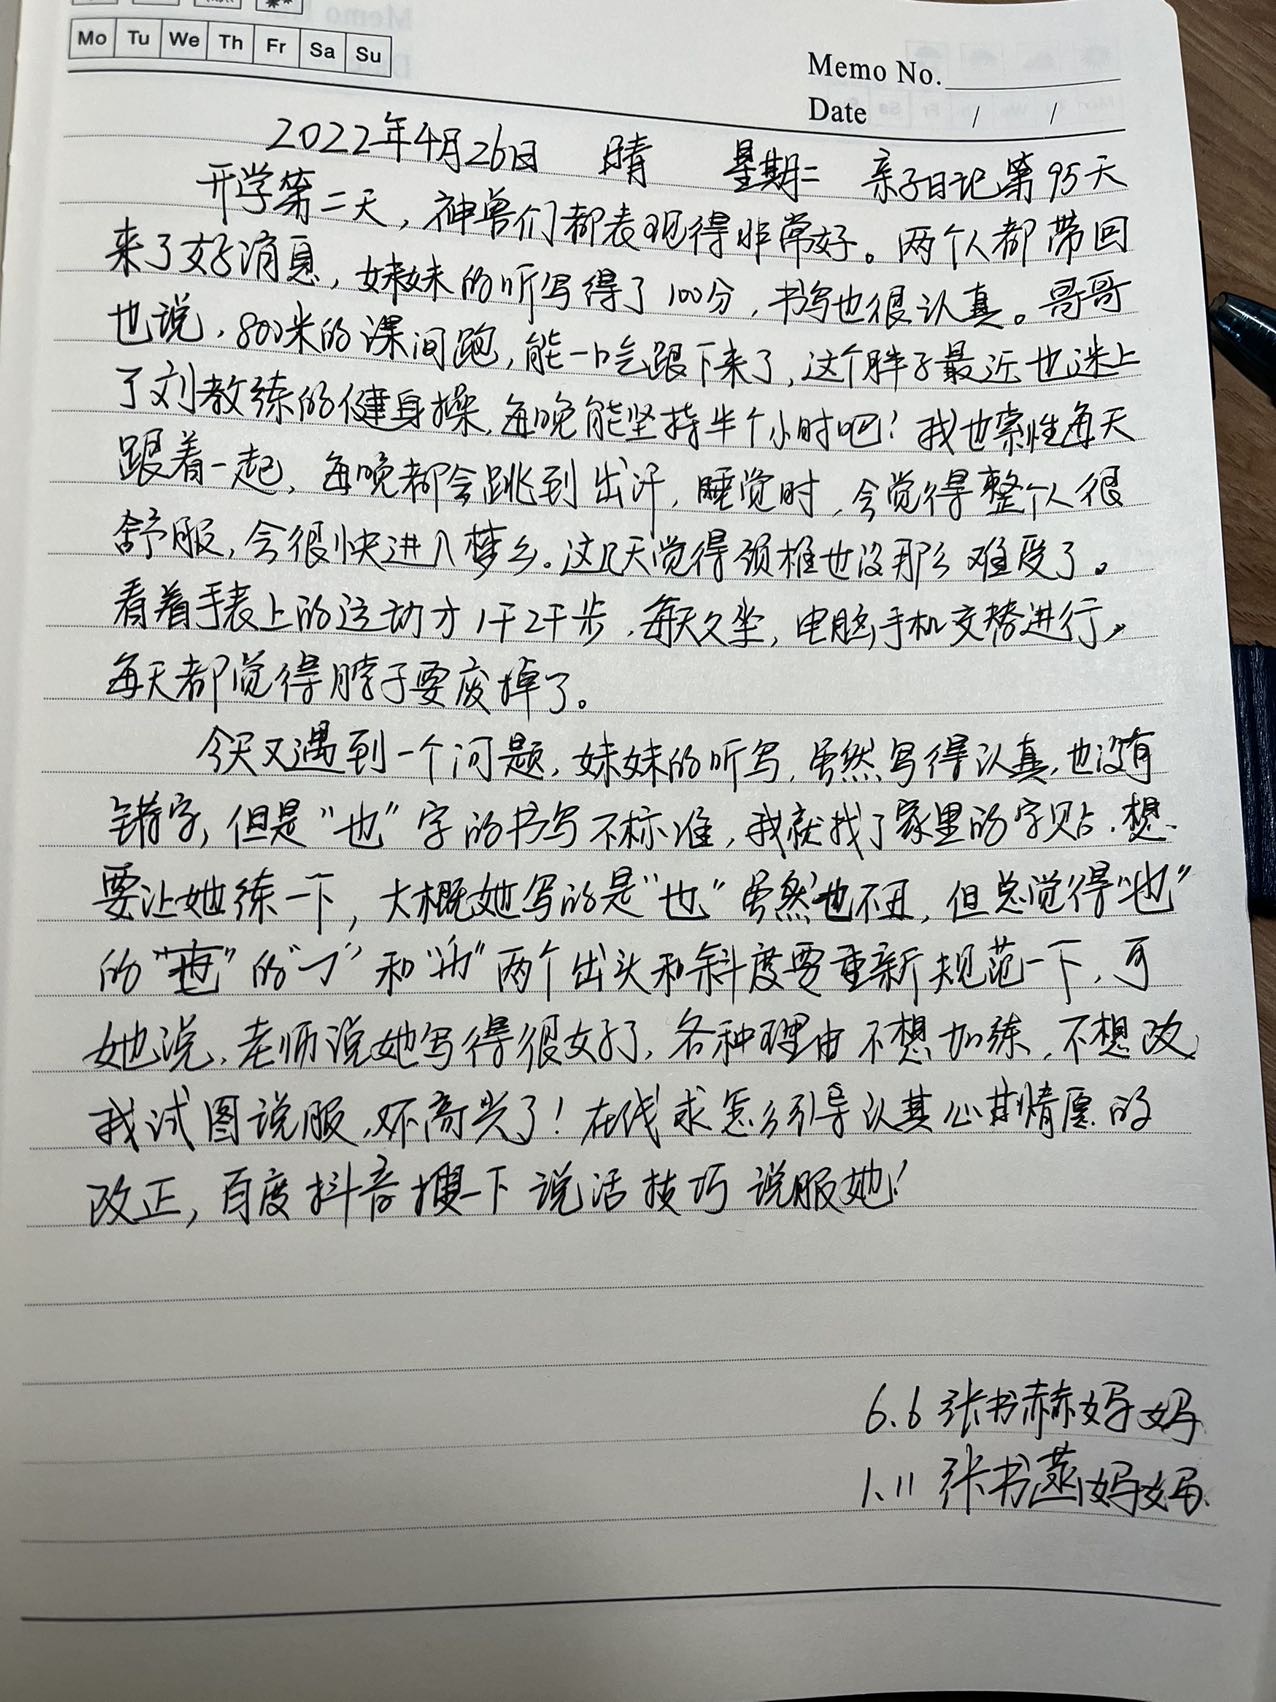 Mo Tu We Th Fr Sa Su
Memo No.
Date / /
2022年4月26日 晴 星期二 亲子日记第95天
开学第二天，神兽们都表现得非常好。两个人都带回
来了好消息，妹妹的听写得了100分，书写也很认真。哥哥
也说，800米的课间跑，能一口气跟下来了，这个胖子最近也迷上
了刘教练的健身操，每晚能坚持半个小时吧！我也索性每天
跟着一起，每晚都会跳到出汗，睡觉时，会觉得整个人很
舒服，会很快进入梦乡。这几天觉得颈椎也没那么难受了。
看着手表上的运动才1千2千步，每天久坐，电脑手机交替进行，
每天都觉得脖子要废掉了。
今天又遇到一个问题，妹妹的听写，虽然写得认真，也没有
错字，但是“也”字的书写不标准，我就找了家里的字贴，想
要让她练一下，大概她写的是“也”虽然也不丑，但总觉得“也”
的“”的“㇆”和“”两个出头和斜度要重新规范一下，可
她说，老师说她写得很好了，各种理由不想加练，不想改，
我试图说服，还高兴了！在线求怎么引导认其心甘情愿的
改正，百度抖音搜一下说话技巧说服她！
6.6 张书赫妈妈
1.11 张书菡妈妈